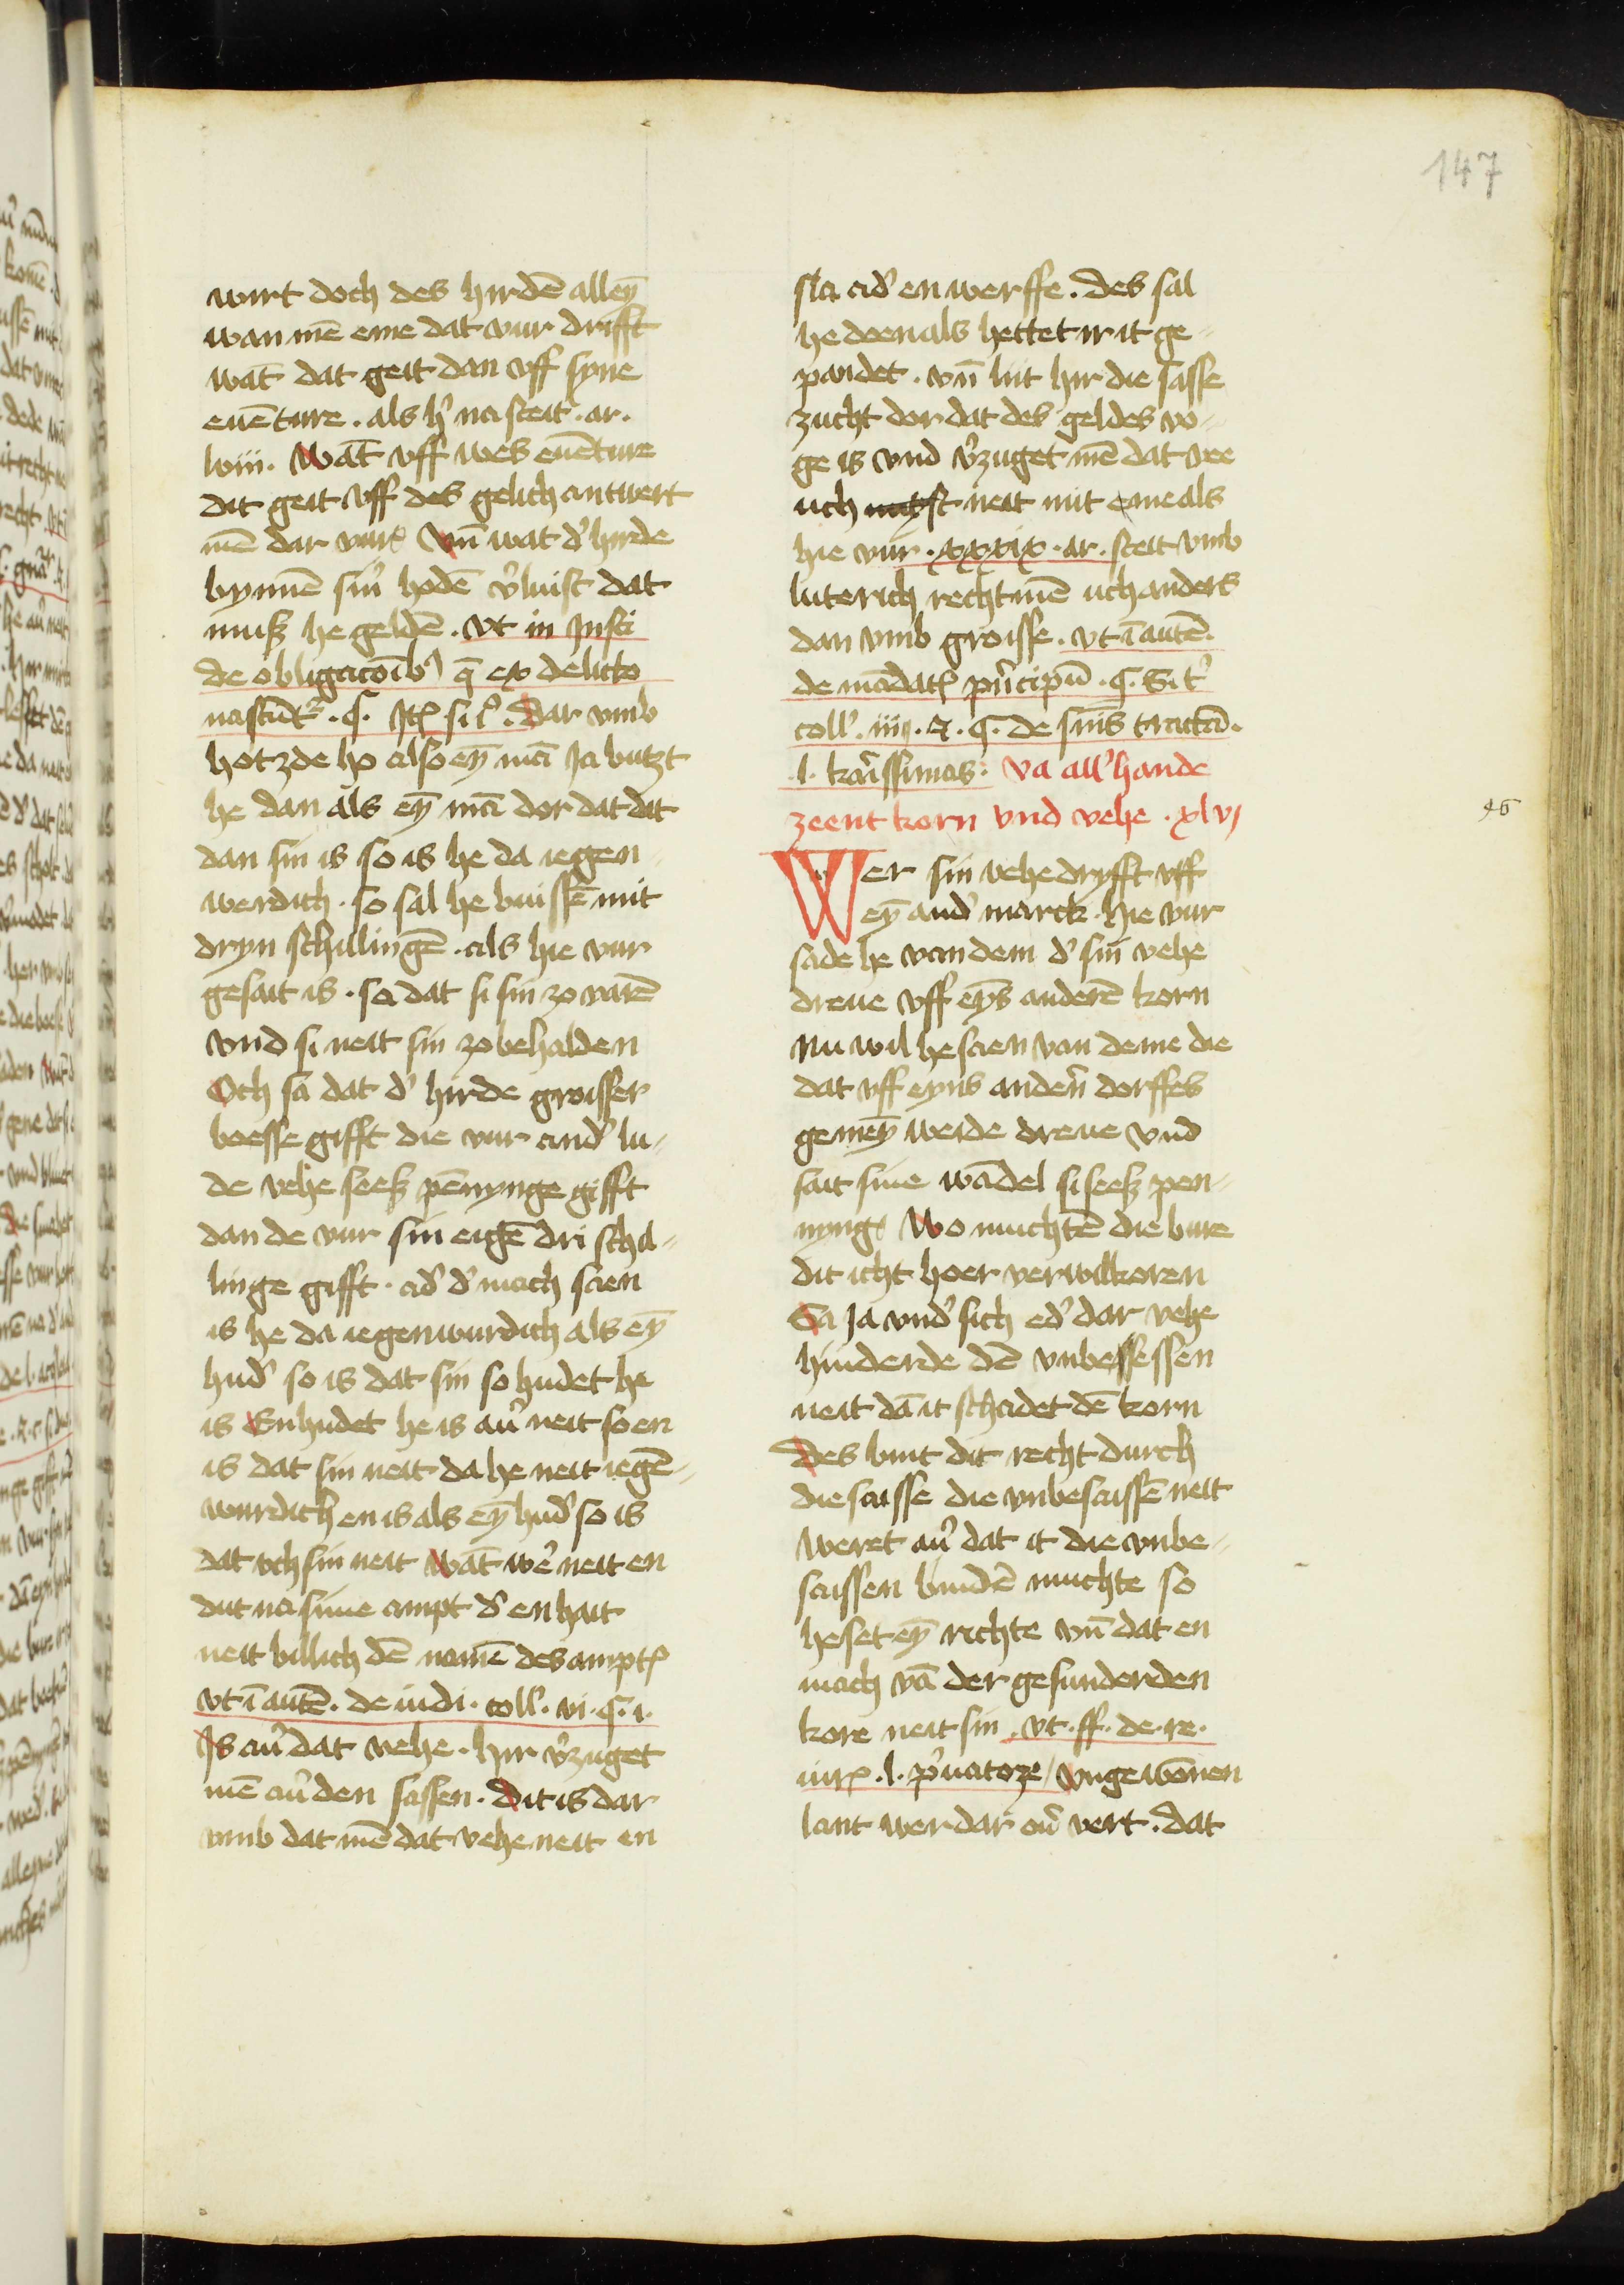 147
wirt doch des hirdē alleȳ
wan mē eme dat vur drifft
wāt dat geit dan vff syne
euēture . als h' na steit . ar .
lviii . Wāt vff wes euēture
dit geit vff des gelich antwert
mē dar vur Vn̄ wat d' hirde
bynnē sin' hodē v'luist dat
muß he geldē . vt in Insti
de obligacōib' q̄ ex delicto
nascūt' . ϛ . Itē si i' . Dar vmb
hotzde he also eȳ mā Ja butzt
he dan als eȳ mā dor dat dit
dan sin is so is he da iegen
werdich . so sal he buissē mit
dryn schillingē . als hie vur
gesait is . sa dat si sin zo warē
vnd si neit sin zo behalden
Och sa dat d' hirde groisser
boesse gifft die vur and' lu
de vehe seeß pēnynge gifft
dan de vur sin eigē dri schil
linge gifft . ad' d' mach saen
is he da iegenwurdich als eȳ
hud' so is dat sin so hudet he
is Enhudet he is au' neit so en
is dat sin neit da he neit iegē
wurdich en is als eȳ hud' so is
dat och sin neit Wāt we' neit en
dut na sime ampt d' en hait
neit billich dē namē des ampt
vt ī autē . de iudi . coll' . vi . ϛ . i .
Is au' dat vehe . hir v'zuget
mē au' den sassen . Dit is dar
vmb dat mē dat vehe neit en
sla ad' en werffe . des sal
he doen als hettet ir it ge
pandet . vn̄ lut hir die sasse
zucht dor dat des geldes vo
ge is vnd v'zuget mē dat vee
uch neit mit eme als
hie vur . xxxix . ar . steit vmb
luterich recht mē uch anders
dan vmb groisse . vt ī autē .
de mādat pn'cipū . ϛ . Si t'
coll' . iiij . ⁊ . ϛ . de sūis tractā .
l . kar'issimas . Va all' hande
zeent korn vnd vehe . xlvj
46
Wer sin vehe dryfft vff
eȳ and' marck . hie vur
sade he van dem d' sin vehe
dreue vff eȳs anderē korn
Nu wil he saen van deme die
dat vff eyns anden' dorffes
gemeȳ weide dreue vnd
sait sine wādel si seeß pen
nyng Wo muchtē die bure
dit icht hoer verwilkoren
Sa Ja vnd' sich ed' dar vehe
hinderde dē vnbesessen
neit dā it schadet dē korn
Des bint dit recht durch
die saisse die vnbesaissē neit
weret au' dat it die vnbe
saissen bindē muchte so
he set eȳ richte vn̄ dat en
mach vā der gesunderden
kore neit sin . vt . ff . de . re .
iur . l . p'uatoze / Vngewōnen
lant wer dar ou' vert . dat